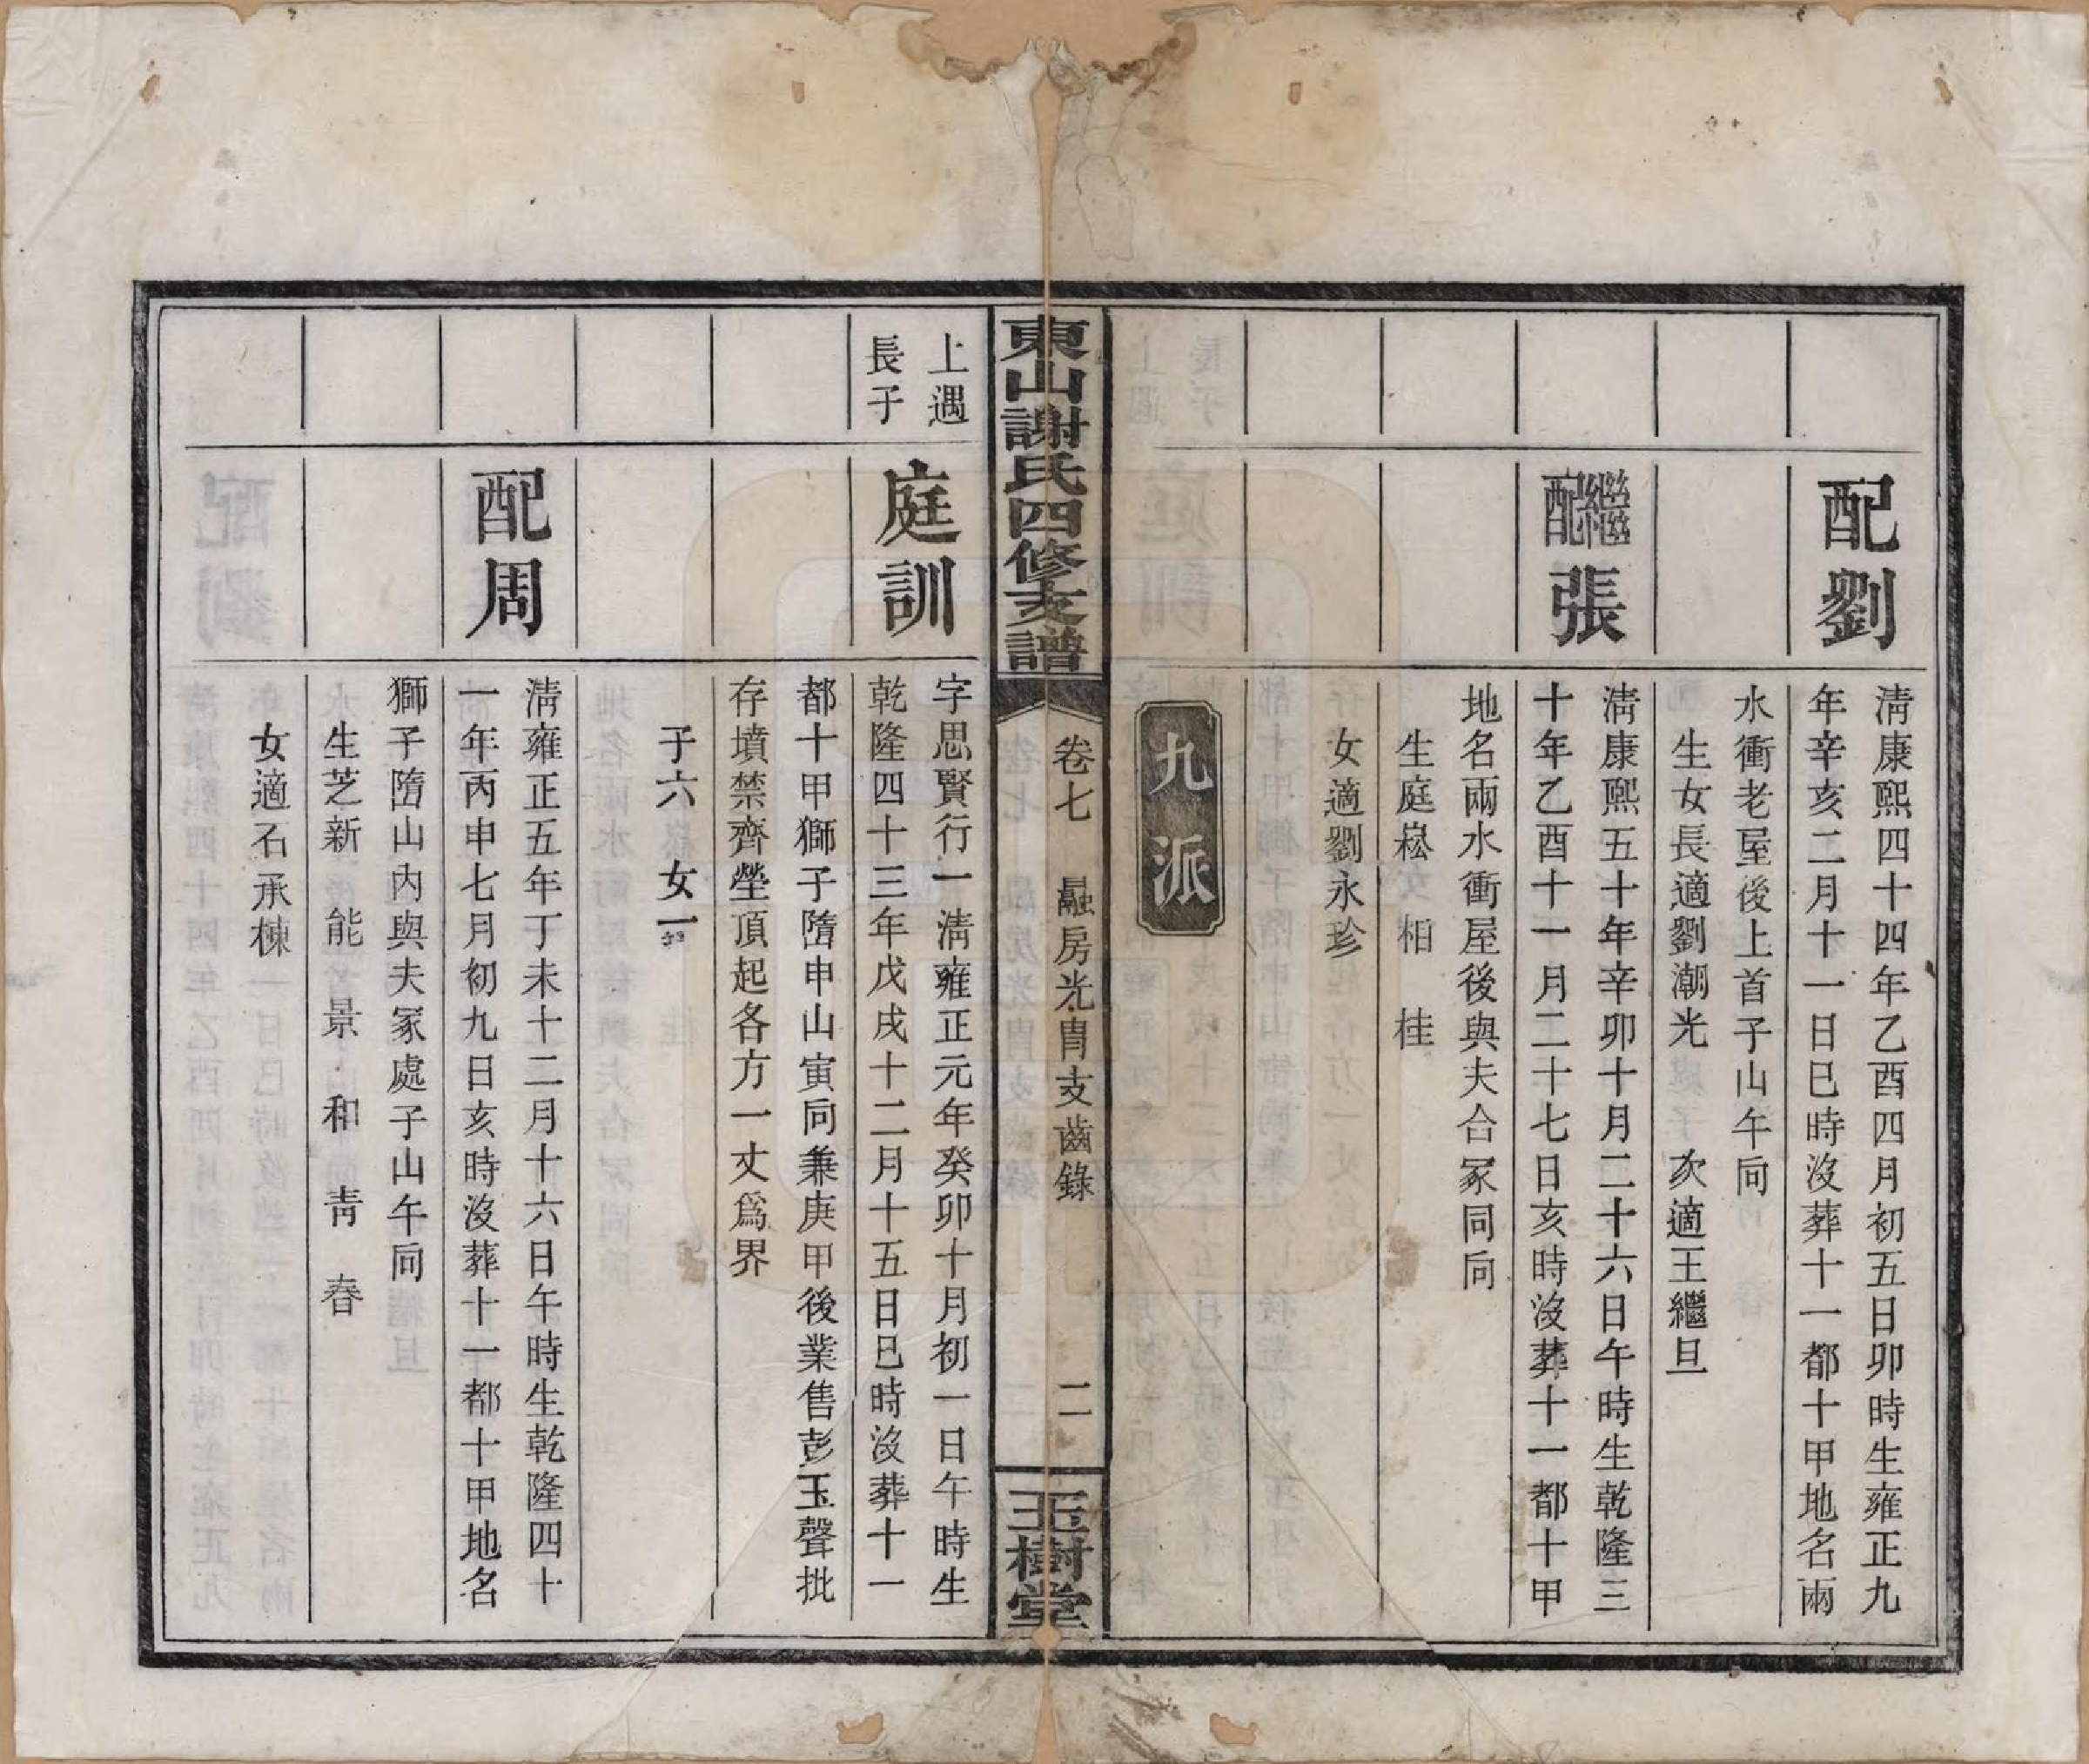 配劉
清康熙四十四年乙酉四月初五日卯時生雍正九
年辛亥二月十一日巳時沒葬十一都十甲地名兩
水衝老屋後上首子山午向
生女長適劉潮光　次適王繼旦
繼配張
清康熙五十年辛卯十月二十六日午時生乾隆三
十年乙酉十一月二十七日亥時沒葬十一都十甲
地名兩水衝屋後與夫合冢同向
生庭崧　相　桂
女適劉永珍
九派
東山謝氏四修支譜
卷七　融房光胄支齒錄
二
玉樹堂
上遇
長子
庭訓
字思賢行一清雍正元年癸卯十月初一日午時生
乾隆四十三年戊戌十二月十五日巳時沒葬十一
都十甲獅子隋申山寅向兼庚甲後業售彭玉聲批
存墳禁齊塋頂起各方一丈爲界
子六　女一
配周
清雍正五年丁未十二月十六日午時生乾隆四十
一年丙申七月初九日亥時沒葬十一都十甲地名
獅子隋山內與夫冢處子山午向
生芝新　能　景　和　青　春
女適石承棟